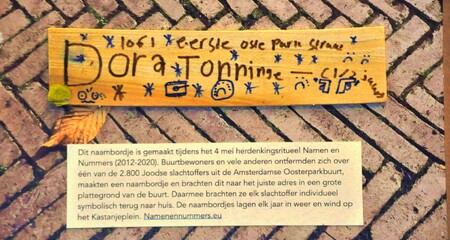 1061 eerste oste Park straat
Dora Tonninge
Dit naambordje is gemaakt tijdens het 4 mei herdenkingsritueel Namen en
Nummers (2012-2020). Buurtbewoners en vele anderen ontfermden zich over
één van de 2.800 Joodse slachtoffers uit de Amsterdamse Oosterparkbuurt,
maakten een naambordje en brachten dit naar het juiste adres in een grote
plattegrond van de buurt. Daarmee brachten ze elk slachtoffer individueel
symbolisch terug naar huis. De naambordjes lagen elk jaar in weer en wind op
het Kastanjeplein. Namenennummers.eu